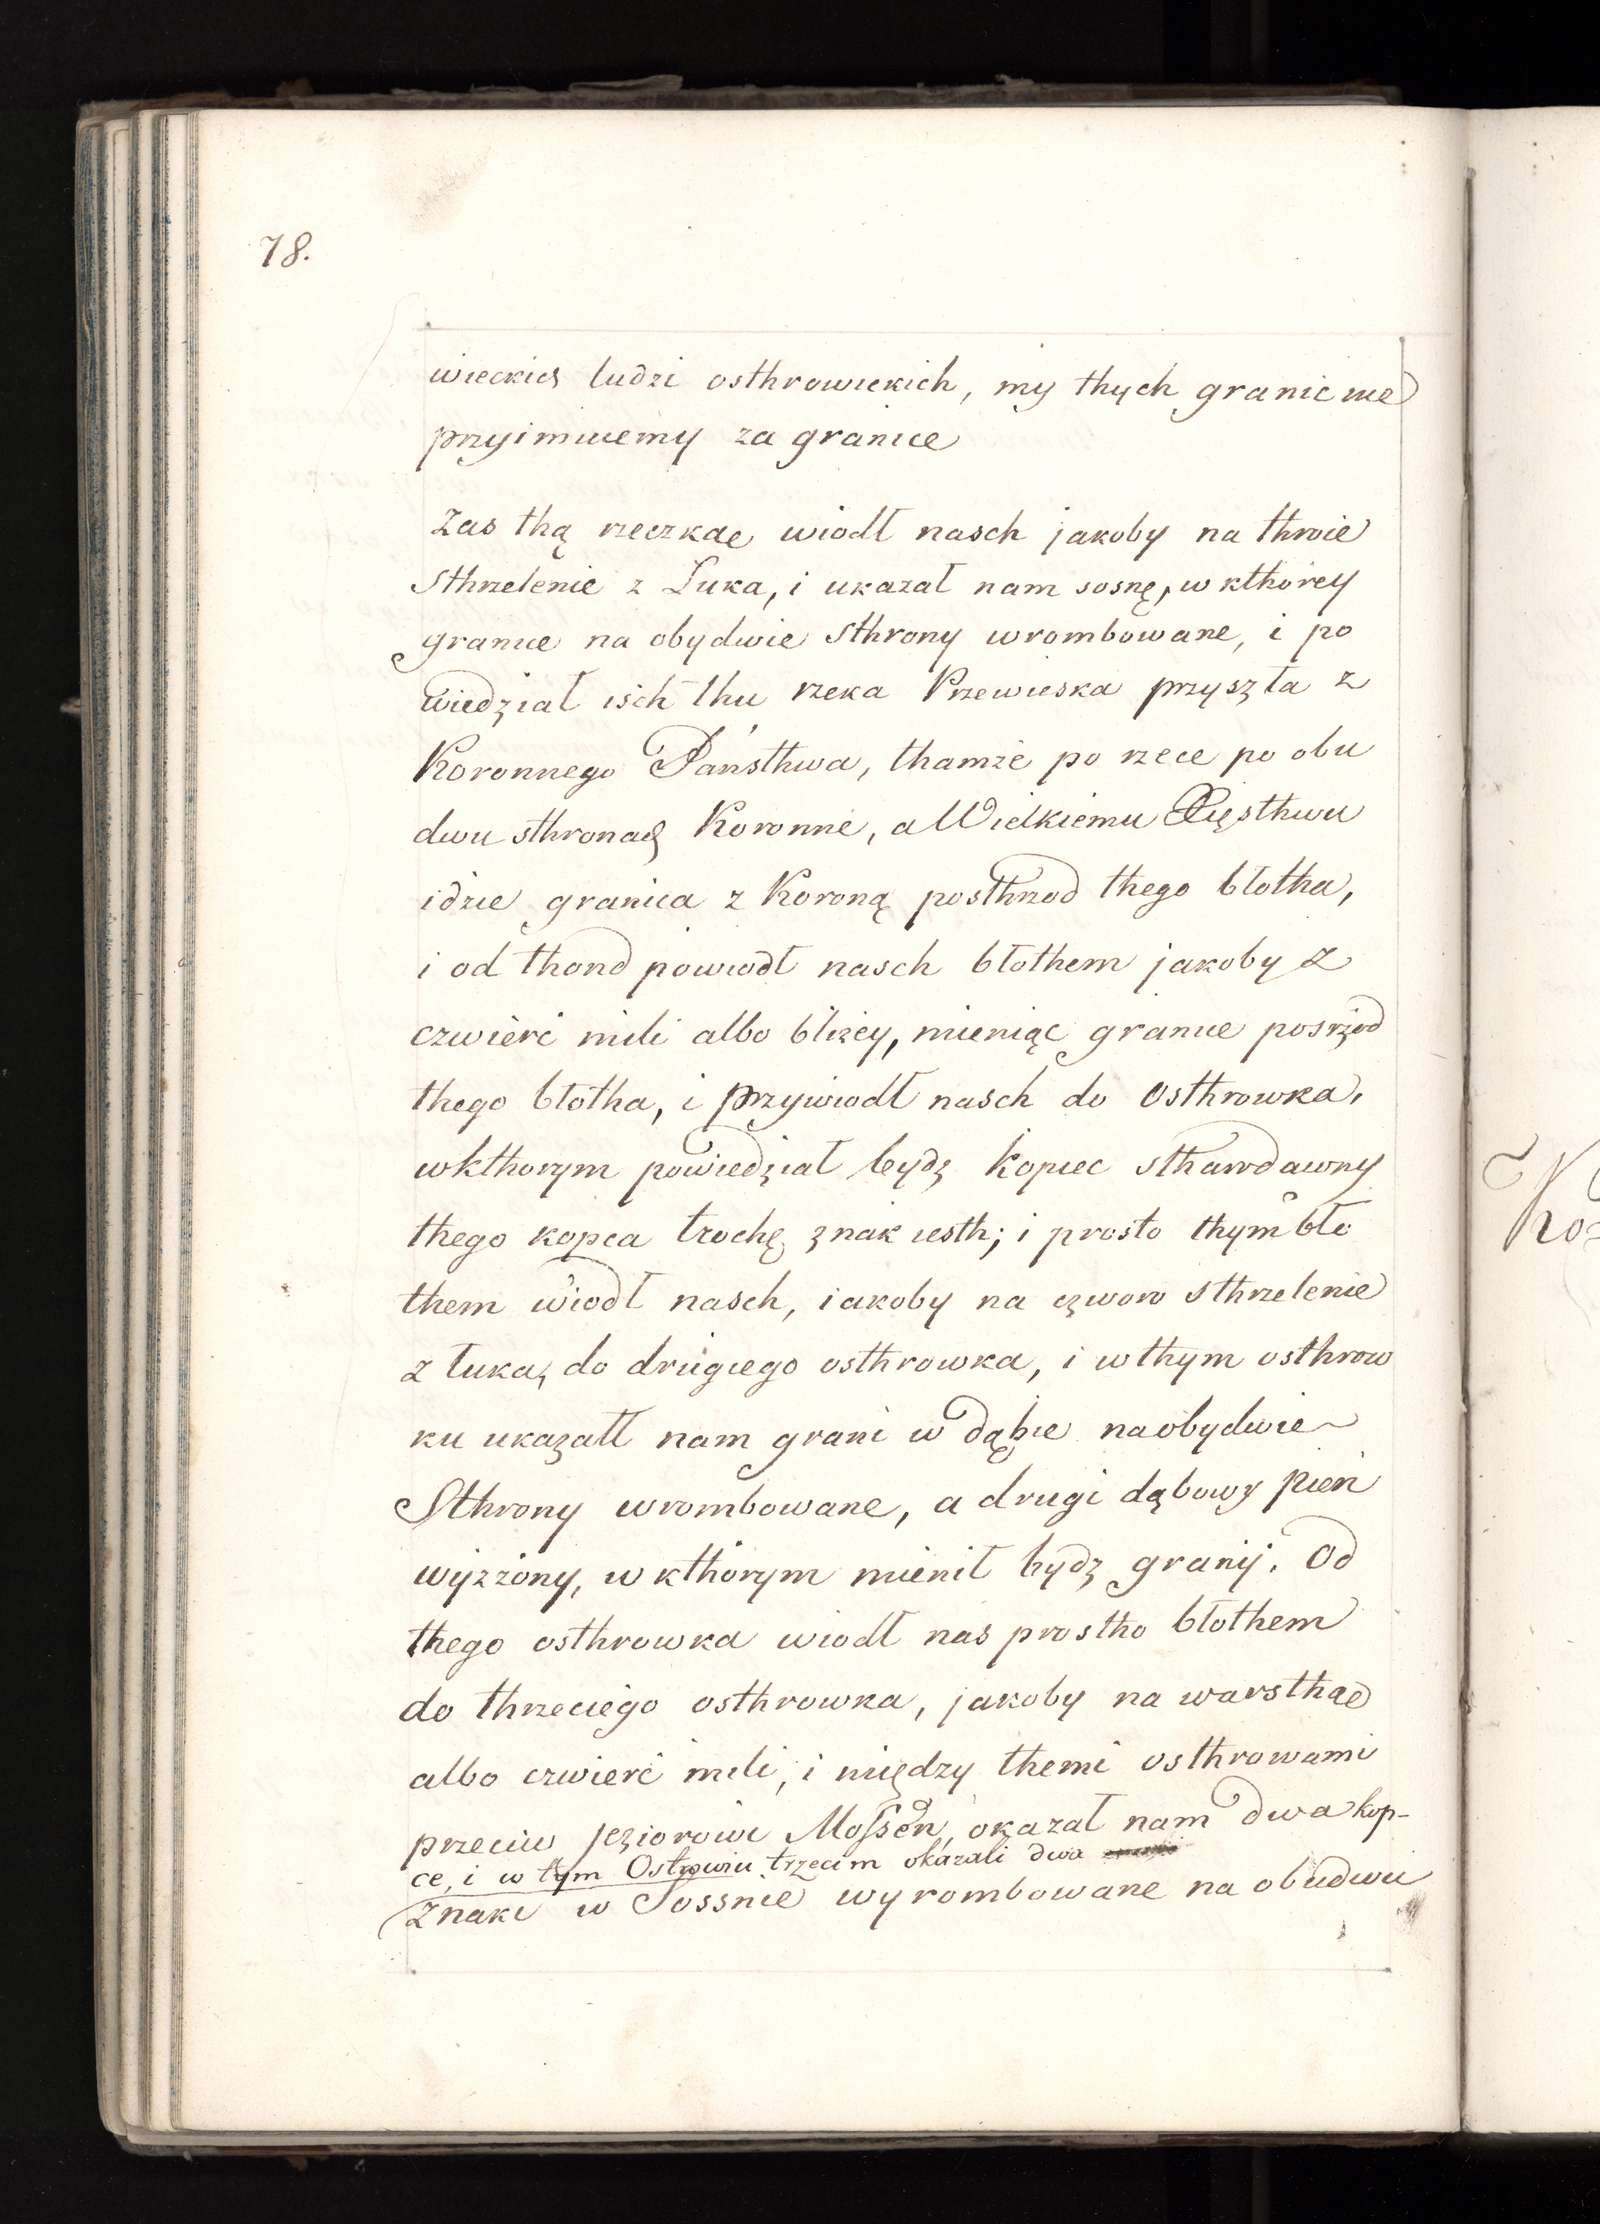 78.
wieckich ludzi osthrowieckich, my thych granic nie
przyimuiemy za granice
Zas thą rzeczkae wiodł nasch jakoby na throie
Sthrzelenie z Luka, i ukazał nam sosnę, w kthórey
granice na obydwie Sthrony wrombowane, i po
wiedział isch thu rzeka Przewieska przyszła z
Koronnego Państhwa, thamże po rzece po obu
dwu sthronach Koronne, a Wielkiemu Xięsthwu
idzie granica z Koroną posthrzod thego błotha,
i od thond powiodł nasch błothem jakoby z
czwierć mili albo bliżey, mieniąc granice posrzod
thego błotha, i przywiodł nasch do Osthrowka,
wkthorym powiedział bydz kopiec sthawdawny
thego kopca trochę znak iesth; i prosto thym bło
them wiodł nasch, iakoby na czworo sthrzelenie
z łuka, do drugiego osthrowka, i wthym osthrow
ku ukazałł nam grani w dąbie na obydwie
Sthrony wrombowane, a drugi dąbowy pień
wyżżony, w kthórym mienił bydz granij. Od
thego osthrowka wiodł nas prostho błothem
do thrzeciego osthrowka, jakoby na warsthae
albo czwierć mili, i między themi osthrowami
przeciw jeziorowi Mossen, okazał nam dwa kop-
ce, i w tym Ostrowiu trzecim okazali dwa
Znaki w Sossnie wyrombowane na obudwu
Ko